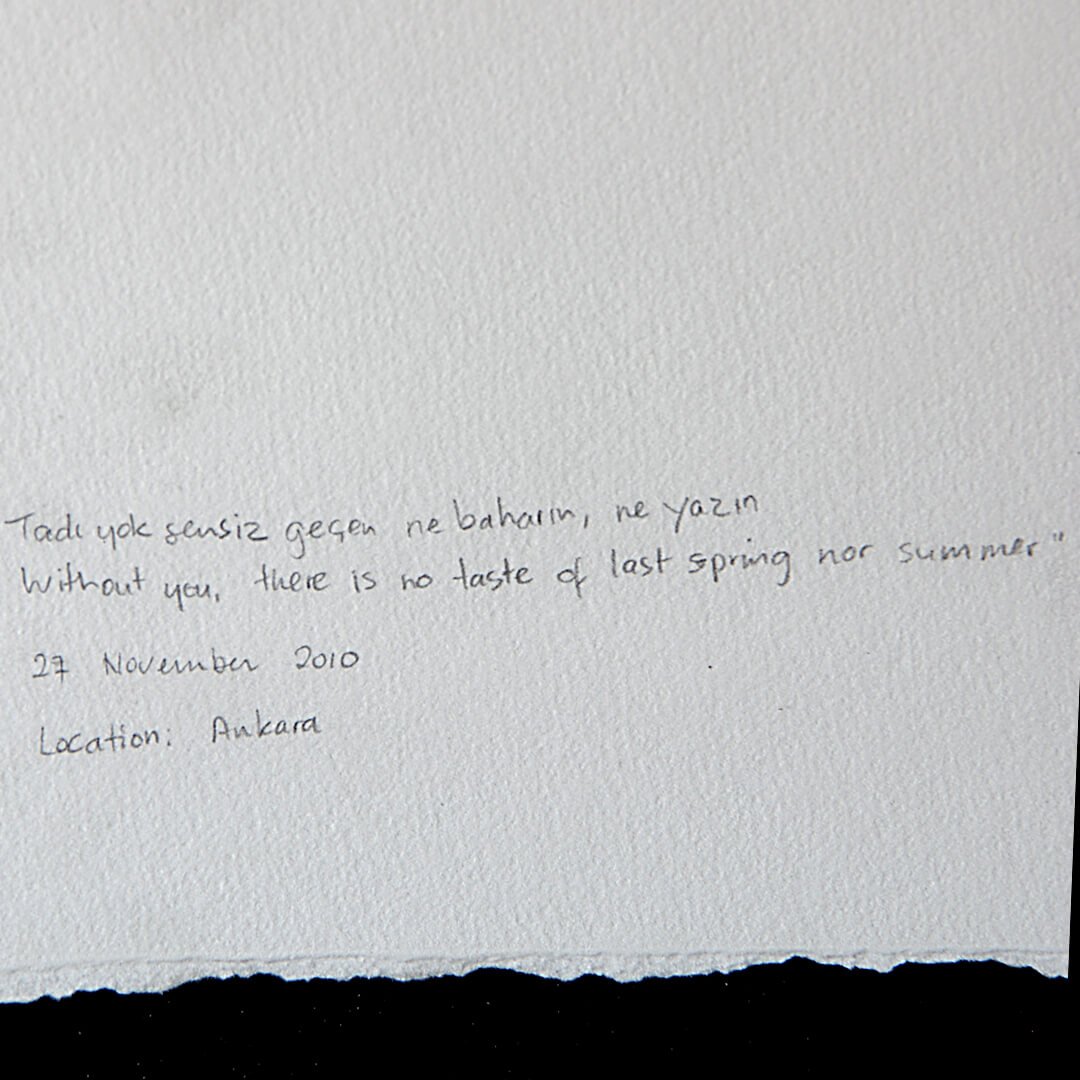 Tadı yok sensiz geçen ne baharın, ne yazın
Without you, there is no taste of last spring nor summer"
27 November 2010
Location: Ankara